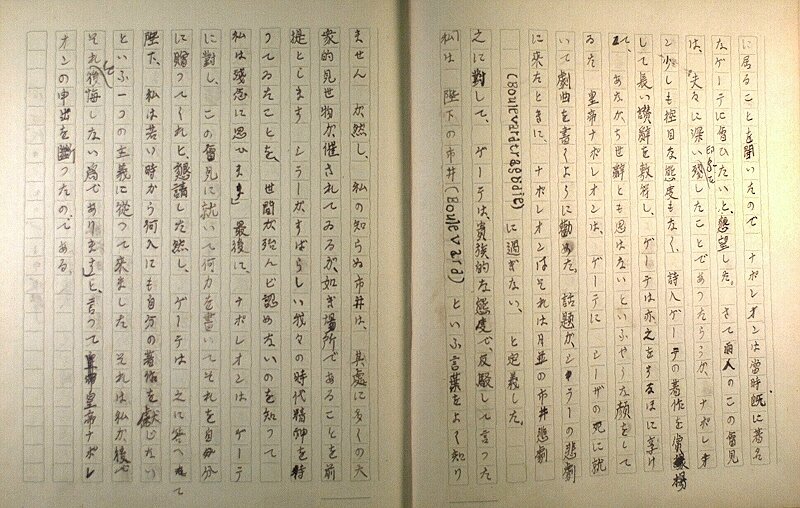 に居ることを聞いたので ナポレオンは當時既に著名
なゲーテに會ひたいと、懇望した。さて兩人のこの會見
は、夫々に深い印象を残したことであつたらうが、ナポレオ
ン少しも控目な態度もなく、詩人ゲーテの著作を賞揚
して長い讃辞を敷衍し、ゲーテは亦之をするほに享け
て、あながち世辞とも思はないといふやうな顔をして
ゐた 皇帝ナポレオンは、ゲーテに シーザの死に就
いて劇曲を書くように勸めた。話題が、シラーの悲劇
に来たときに、ナポレオンはそれは月並の市井悲劇
(Boulevardtragödie) に過ぎない、と定義した。
之に對して、ゲーテは、貴族的な態度で、反駁して言つた
私は 陛下の市井(Boulevard) といふ言葉をよく知り
ません が然し、私の知らぬ市井は、其處に多くの大
衆的見世物が催されてゐるが、如き場所であることを前
提とします シラーがすばらしい我々の時代精神を持
つてゐたことを、世間が殆んど認めないのを知つて
私は残念に思ひます」 最後に、ナポレオンは ゲーテ
に對し、この會見に就いて何カを書いてそれを自分
に贈つてくれと、懇請した然し、ゲーテは 之に答へて
陛下、私は若い時から何人にも自分の著作を献じない
といふ一つの主義に從つて来ました それは私が後で
それを後悔しない為でありますと、言つて 皇帝ナポレ
オンの申出を斷つたのである。